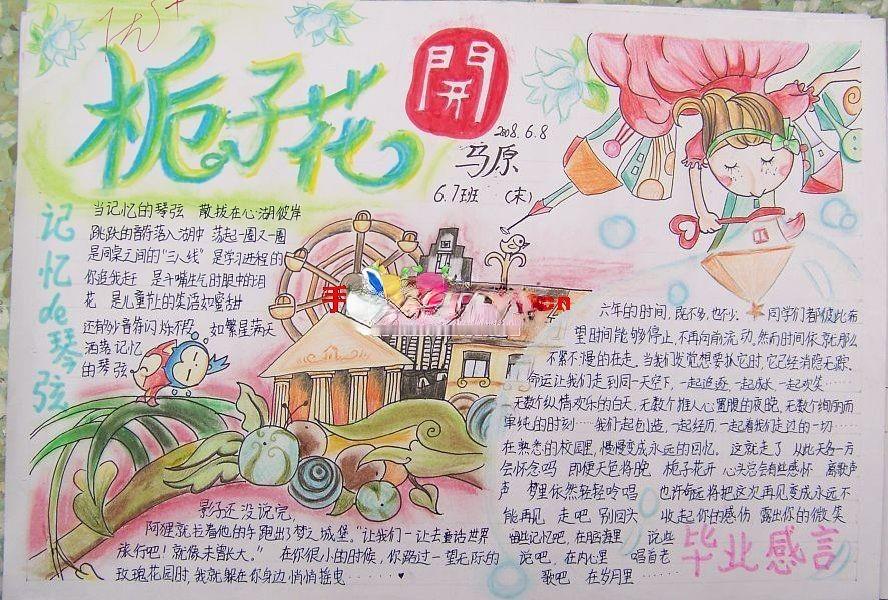 优+
栀子花
開
2008.6.8
马原
6.7班 (末)
记忆de琴弦
当记忆的琴弦 散拔在心湖彼岸
跳跃的音符落入湖中 荡起一圈又一圈
是同桌之间的"三八线" 是学习进程的
你追我赶 是斗嘴生气时眼中的泪
花 是儿童节上的笑语如蜜甜
还有多少音符闪烁不段 如繁星满天
洒落记忆
的琴弦
手
cn
影子还没说完,
阿狸就拉着他的手跑出了梦之城堡。"让我们一让去童话世界
旅行吧!就像未曾长大。" 在你很小的时候,你路过一望无际的
玫瑰花园时,我就躲在你身边悄悄摇曳……
六年的时间,既不多,也不少。同学们都彼此希
望时间能够停止,不再向前流动,然而时间依就那么
不累不慢的在走。当我们发觉想要抓它时,它已经消隐无影、
命运让我们走到同一天空下,一起追逐 一起成长 一起欢笑……
无数个纵情欢乐的白天,无数个推人心置腹的夜晚,无数个绚丽而
单纯的时刻……我们一起创造,一起经历,一起看我们走过的一切……
在熟悉的校园里,慢慢变成永远的回忆。 这就走了 从此天各一方
会怀念吗 即便天色将晚 栀子花开 心头总会有些感怀 离歌声
声 梦里依然轻轻吟唱 也许每远将把这次再见变成永远不
能再见 走吧 别回头 收起你的感伤 露出你的微笑
些记忆吧,在脑海里 说些
说吧,在内心里 唱首老
歌吧 在岁月里……
毕业感言